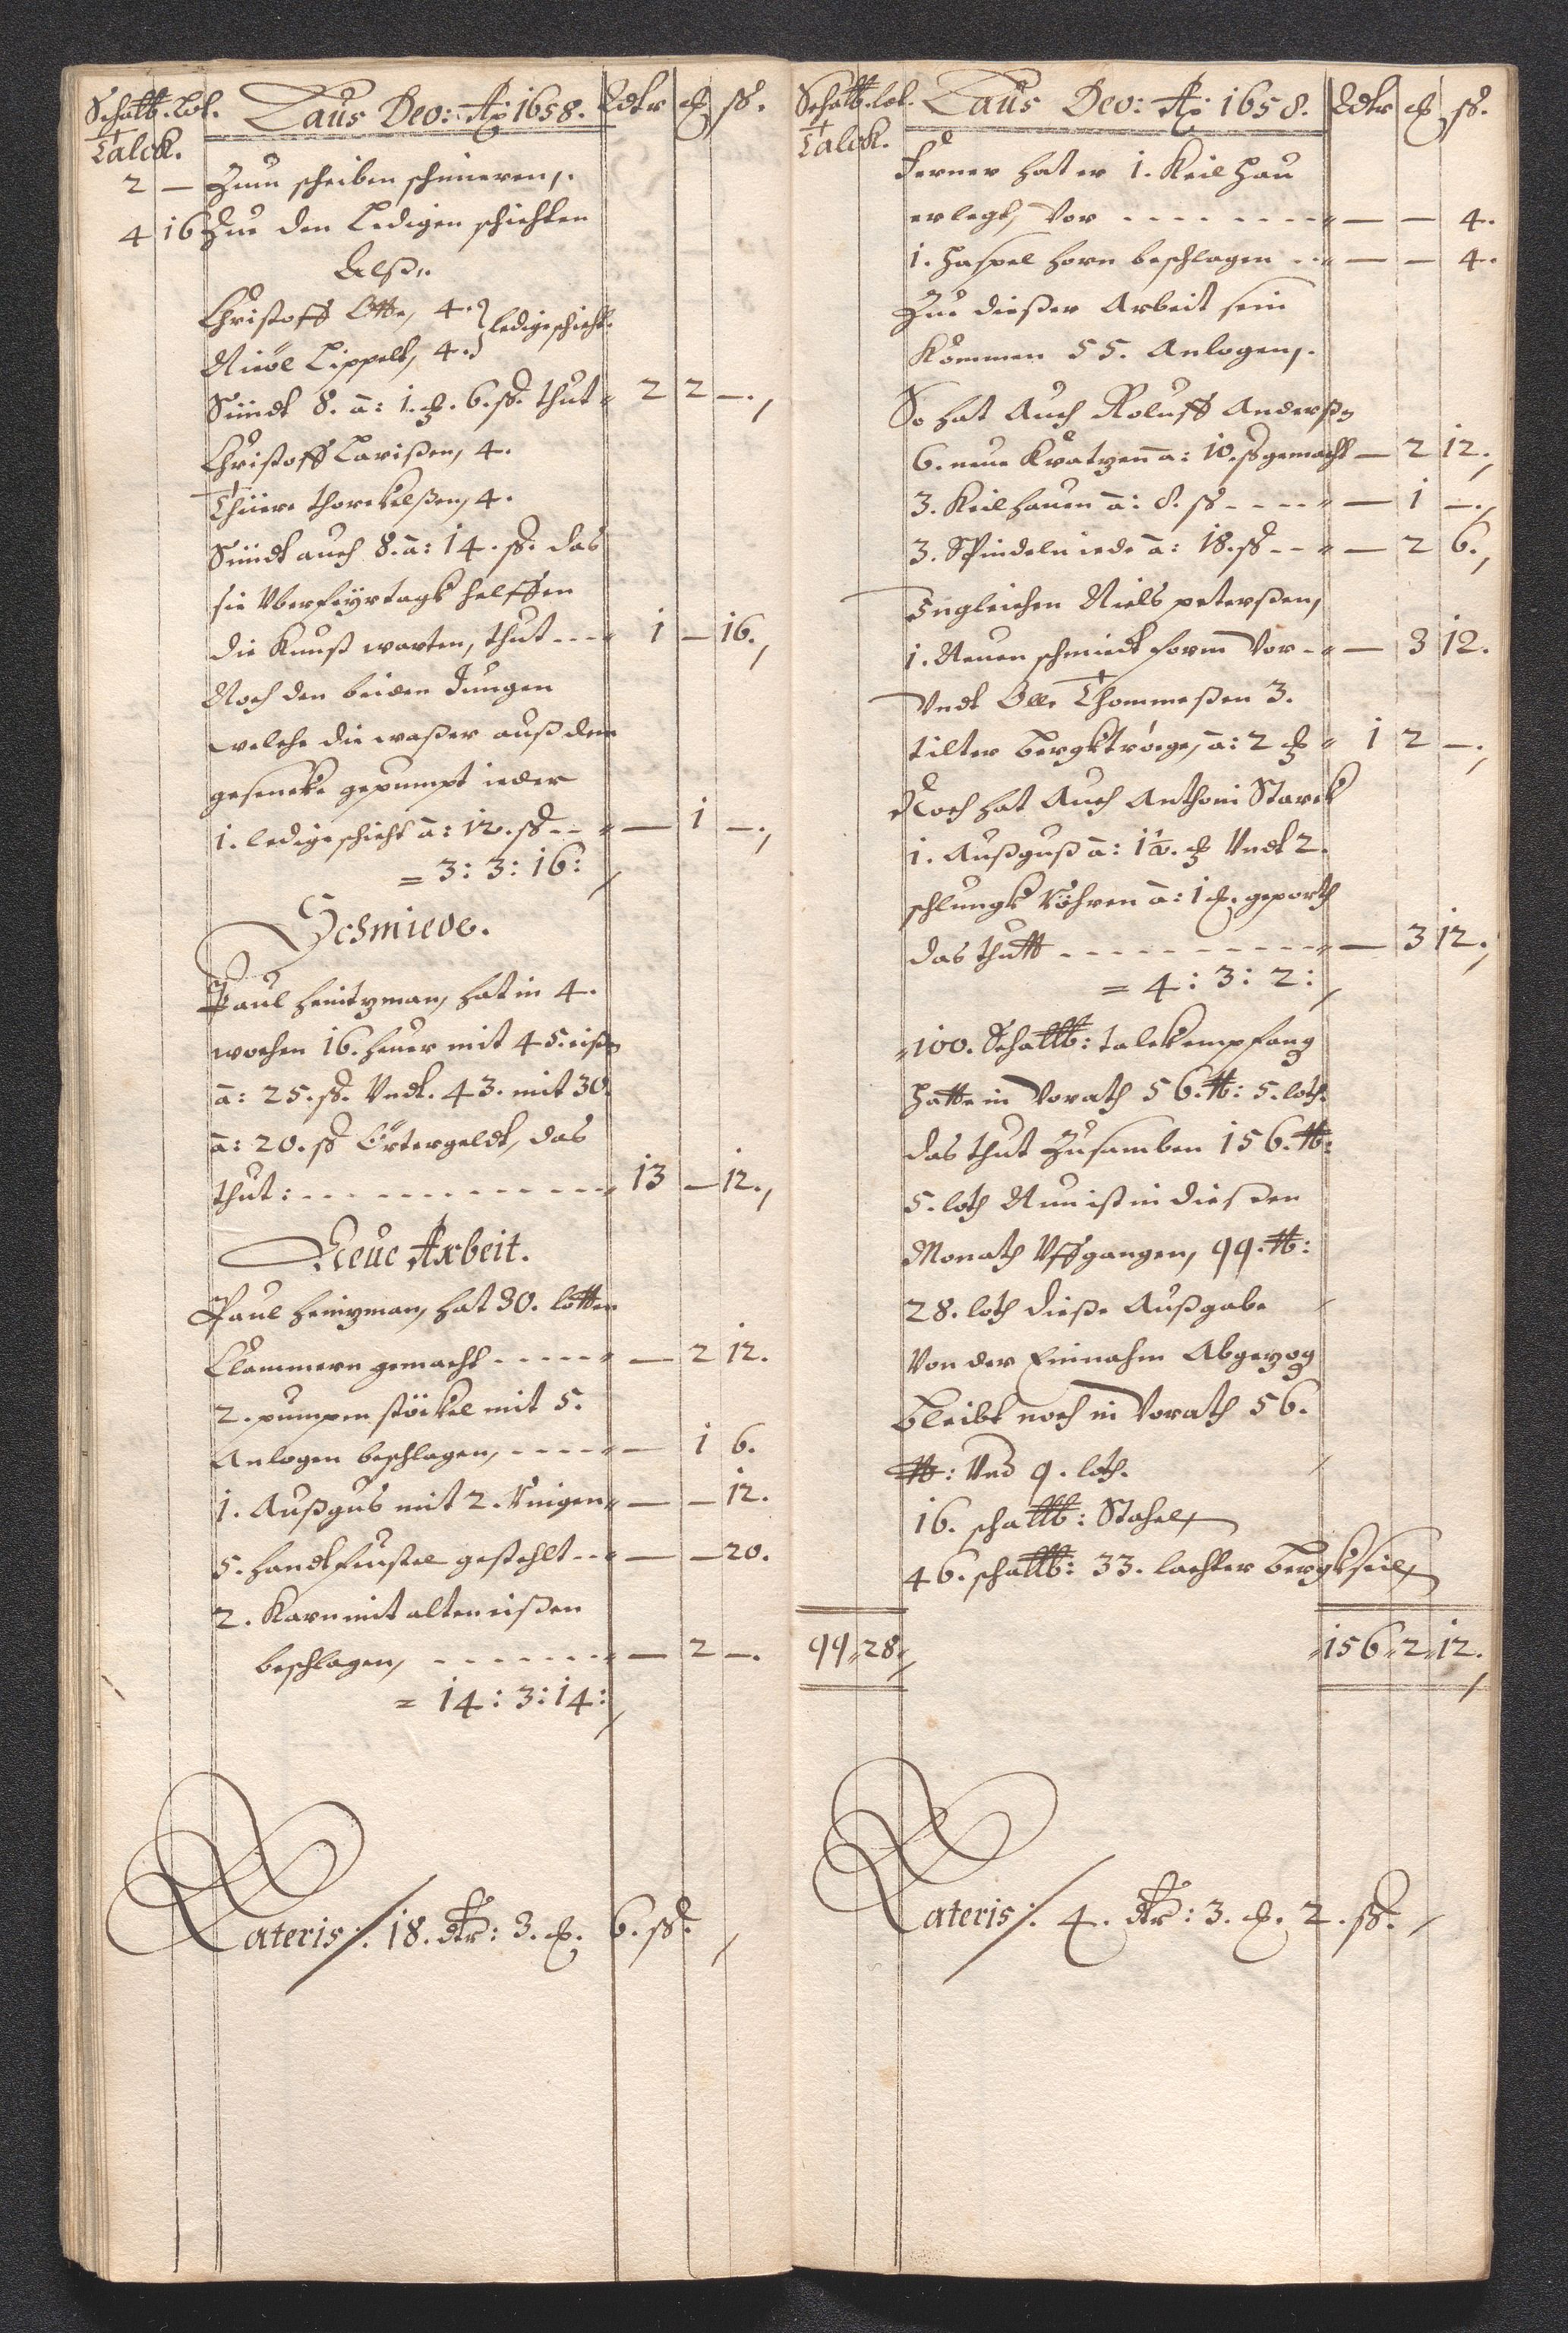 Schatt. Lot. Laus Deo: Ao 1658. Rdtr ß.
Talck.
2 — Zum scheiben schmieren,.
4 16 Zue den Ledigen schichten
Alß,.
Christoff Otte, 4. ledige schicht.
Nicol Lippelt, 4.
Sündt 8. â: 1. . 6. ß. thut 2 2 —.,
Christoff Larißen, 4.
Thüere thorckelßen, 4.
Sündt auch 8. â: 14. ß. das
sie Uber feyrtagk helffen
die Kunst warten, thut --- 1 — 16.,
Noch den beiden Jungen
welche die waßer auß dem
gesencke gepumpt ieder
1. ledige schicht â: 12. ß -- — 1 —.,
= 3: 3: 16:
Schmiede.
Paul heintzman, hat in 4.
wochen 16. heuer mit 45. eißen
â: 25. ß. Undt. 43. mit 30.
â: 20. ß Örtergeldt, das
thut: - - - - - - - - - - 13 — 12.,
Neue Arbeit.
Paul heinzman, hat 30. lotten
Clammern gemacht - - - - - — 2 12.
2. pumpen stöckel mit 5.
Anlogen beschlagen, - - - - — 1 6.
1. Außgus mit 2. Ringen — — 12.
5. handtfeustel gestehlt -- — — 20.
2. Karn mit alten eißen
beschlagen, - - - - - - - — 2 —.
= 14: 3: 14:
Lateris/. 18. dtr: 3. . 6. ß.
Schatt. lot. Laus Deo: Ao 1658. Rdtr ß.
Talck.
Ferner hat er 1. Keil hau
erlegt, Vor - - - - - - - — — 4.
1. haspel horn beschlagen - - — — 4.
Zue dießer Arbeit sein
Kommen 55. Anlogen,.
So hat Auch Roluff Anderßen
6. neue Kratzen â: 10. ß gemacht — 2 12.,
3. Keilhauen â: 8. ß - - - - — 1 —.,
3. Spindeln iede â: 18. ß - - — 2 6.,
Ingleichen Niels peterßen,
1. Neuen schmiedt form Vor - — 3 12.
Undt Olle Thommeßen 3.
tilter bergktröege, â: 2 1 2 —.,
Noch hat Auch Anthoni Starck
1. Außguß â: 1½. Undt 2.
schlungk Röhren â: 1 . geporth
das thutt - - - - - - - - - — 3 12.,
= 4: 3: 2:
100. Schattt: talck empfang
hatte in Vorath 56. tt: 5. loth.
das thut Zusamben 156. tt:
5. loth Nun ist in dießen
Monath Uffgangen, 99. tt:
28. loth dieße Außgabe
Von der Einnahm Abgezog
bleibt noch in Vorath 56.
tt: Und 9. loth.
16. schattt: Stahel
46. schattt: 33. lachter bergkseil
99 28 156 2 12.
Lateris/. 4. dtr: 3. . 2. ß.